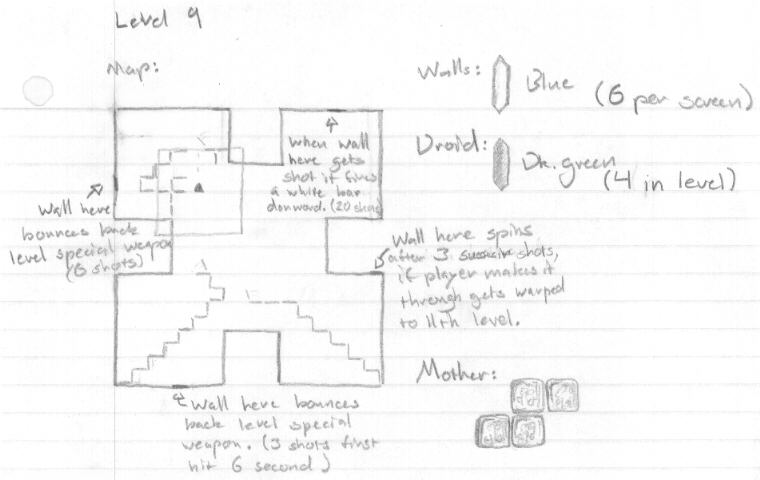 Level 9
Map:
Walls:
Blue (6 per screen)
Droid:
Dk. green
(4 in level)
When wall
here gets
shot it fires
a white bar
donward. (20 shots
Wall here
bounces back
level special weapon
(6 shots)
Wall here spins
after 3 shots,
if player makes it
through gets warped
to 11th level.
Mother:
Wall here bounces
back level special
weapon. (3 shots first
hit 6 second)